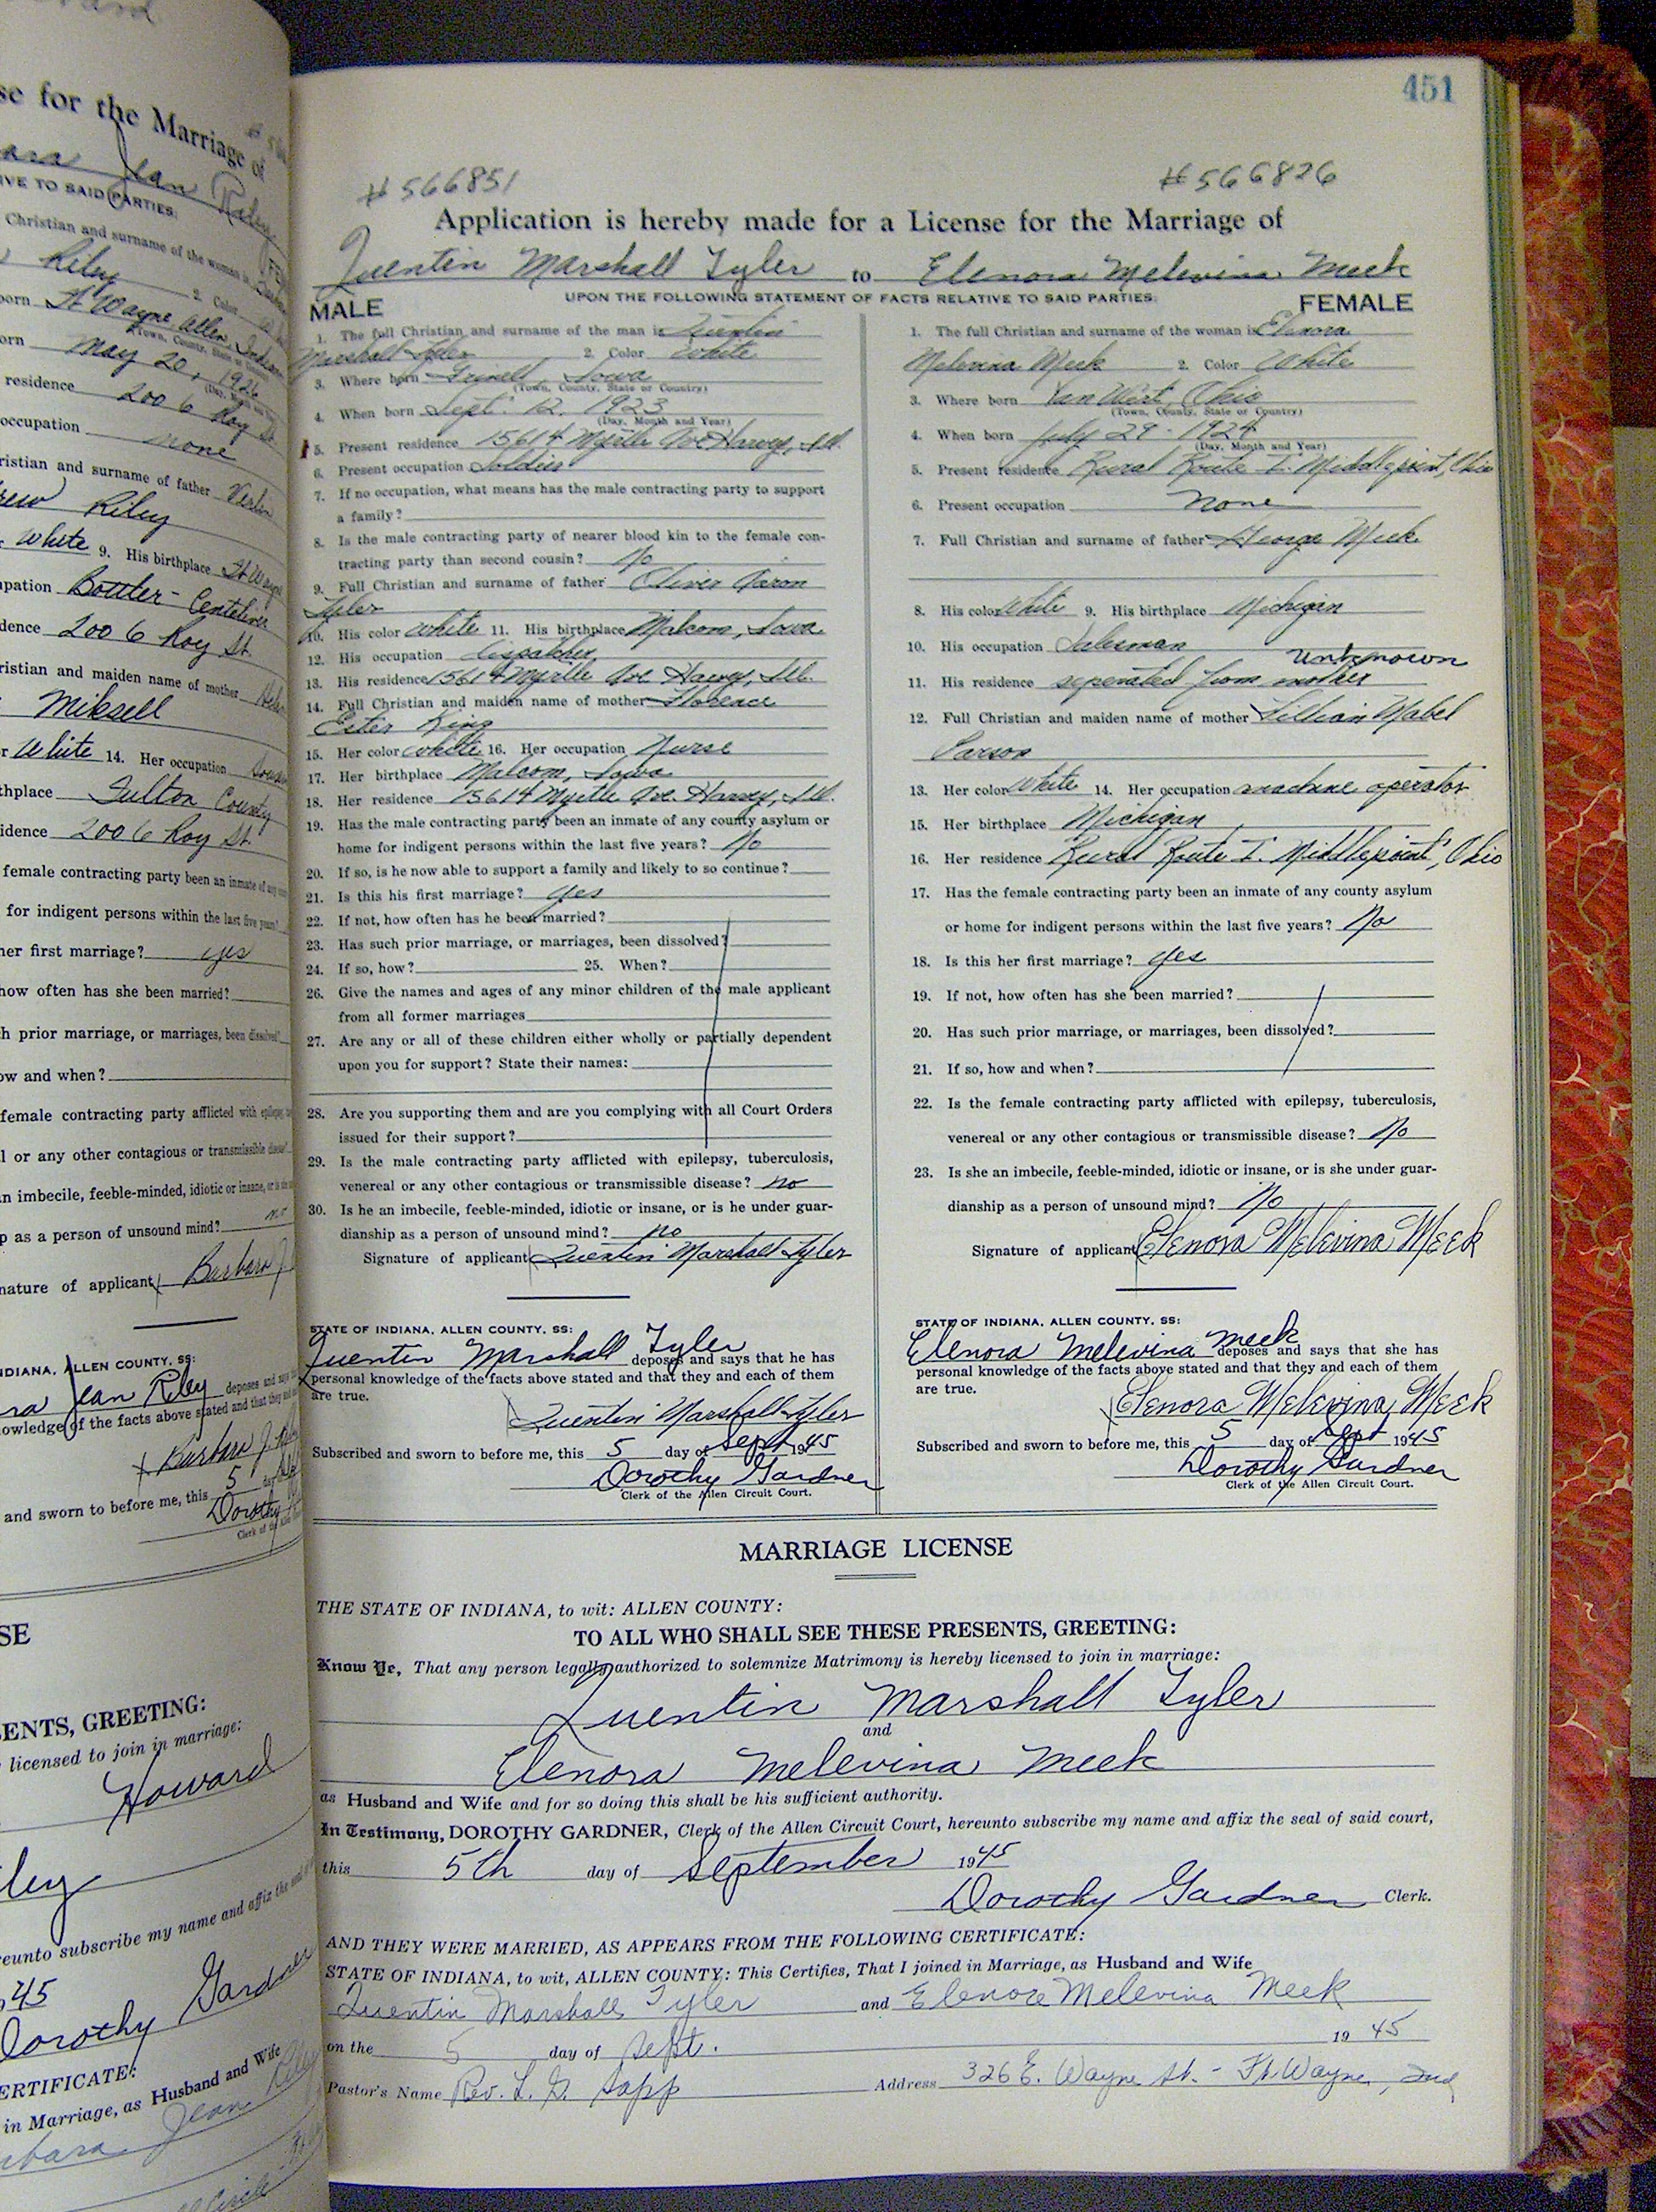 se for the Marriage of
Jean
IVE TO SAID PARTIES:
Christian and surname of the woman
Riley 2. Color
born Ft Wayne, Allen, Indiana
(Town, County, State or
orn May 20, 1926
(Day, Month and
residence 2006 Roy St.
occupation none
ristian and surname of father
Riley
White 9. His birthplace Ft Wayne
pation Bottler - Centlivre
dence 2006 Roy St.
ristian and maiden name of mother
Miksell
r White 14. Her occupation
thplace Fulton County
idence 2006 Roy St.
female contracting party been an inmate of any
for indigent persons within the last five years?
her first marriage? yes
how often has she been married?
h prior marriage, or marriages, been dissolved?
ow and when?
female contracting party afflicted with epilepsy,
l or any other contagious or transmissible disease?
n imbecile, feeble-minded, idiotic or insane, or is she
p as a person of unsound mind? no
nature of applicant Barbara J
NDIANA, ALLEN COUNTY, SS:
ra Jean Riley deposes and says
owledge of the facts above stated and that they
Barbara J.
and sworn to before me, this 5 day
Dorothy
Clerk of the
SE
ENTS, GREETING:
licensed to join in marriage:
Howard
ley
reunto subscribe my name and affix the
45
Dorothy Gardner
ERTIFICATE:
in Marriage, as Husband and Wife
Jean Riley
451
#566851 #566826
Application is hereby made for a License for the Marriage of
Quentin Marshall Tyler to Elenora Melevina Meek
UPON THE FOLLOWING STATEMENT OF FACTS RELATIVE TO SAID PARTIES:
MALE
1. The full Christian and surname of the man is Quentin
Marshall Tyler 2. Color White
3. Where born Grinell Iowa
(Town, County, State or Country)
4. When born Sept. 12, 1923
(Day, Month and Year)
5. Present residence 15614 Myrtle Ave Harvey, Ill.
6. Present occupation Soldier
7. If no occupation, what means has the male contracting party to support
a family?
8. Is the male contracting party of nearer blood kin to the female con-
tracting party than second cousin? No
9. Full Christian and surname of father Oliver Aaron
Tyler
10. His color White 11. His birthplace Malcom, Iowa
12. His occupation dispatcher
13. His residence 15614 Myrtle Ave Harvey, Ill.
14. Full Christian and maiden name of mother Florence
Ester King
15. Her color White 16. Her occupation Nurse
17. Her birthplace Malcom, Iowa
18. Her residence 15614 Myrtle Ave. Harvey, Ill.
19. Has the male contracting party been an inmate of any county asylum or
home for indigent persons within the last five years? No
20. If so, is he now able to support a family and likely to so continue?
21. Is this his first marriage? yes
22. If not, how often has he been married?
23. Has such prior marriage, or marriages, been dissolved?
24. If so, how? 25. When?
26. Give the names and ages of any minor children of the male applicant
from all former marriages
27. Are any or all of these children either wholly or partially dependent
upon you for support? State their names:
28. Are you supporting them and are you complying with all Court Orders
issued for their support?
29. Is the male contracting party afflicted with epilepsy, tuberculosis,
venereal or any other contagious or transmissible disease? no
30. Is he an imbecile, feeble-minded, idiotic or insane, or is he under guar-
dianship as a person of unsound mind? no
Signature of applicant Quentin Marshall Tyler
STATE OF INDIANA, ALLEN COUNTY, SS:
Quentin Marshall Tyler deposes and says that he has
personal knowledge of the facts above stated and that they and each of them
are true.
Quentin Marshall Tyler
Subscribed and sworn to before me, this 5 day of Sept 1945
Dorothy Gardner
Clerk of the Allen Circuit Court.
FEMALE
1. The full Christian and surname of the woman is Elenora
Melevina Meek 2. Color White
3. Where born Van Wert, Ohio
(Town, County, State or Country)
4. When born July 29 - 1924
(Day, Month and Year)
5. Present residence Rural Route I. Middlepoint, Ohio
6. Present occupation None
7. Full Christian and surname of father George Meek
8. His color White 9. His birthplace Michigan
10. His occupation Salesman
Unknown
11. His residence seperated from mother
12. Full Christian and maiden name of mother Lillian Mabel
Parson
13. Her color White 14. Her occupation machine operator
15. Her birthplace Michigan
16. Her residence Rural Route I. Middlepoint, Ohio
17. Has the female contracting party been an inmate of any county asylum
or home for indigent persons within the last five years? No
18. Is this her first marriage? yes
19. If not, how often has she been married?
20. Has such prior marriage, or marriages, been dissolved?
21. If so, how and when?
22. Is the female contracting party afflicted with epilepsy, tuberculosis,
venereal or any other contagious or transmissible disease? No
23. Is she an imbecile, feeble-minded, idiotic or insane, or is she under guar-
dianship as a person of unsound mind? No
Signature of applicant Elenora Melevina Meek
STATE OF INDIANA, ALLEN COUNTY, SS:
Elenora Melevina Meek deposes and says that she has
personal knowledge of the facts above stated and that they and each of them
are true.
Elenora Melevina Meek
Subscribed and sworn to before me, this 5 day of Sept 1945
Dorothy Gardner
Clerk of the Allen Circuit Court.
MARRIAGE LICENSE
THE STATE OF INDIANA, to wit: ALLEN COUNTY:
TO ALL WHO SHALL SEE THESE PRESENTS, GREETING:
Know Ye, That any person legally authorized to solemnize Matrimony is hereby licensed to join in marriage:
Quentin Marshall Tyler
and
Elenora Melevina Meek
as Husband and Wife and for so doing this shall be his sufficient authority.
In Testimony, DOROTHY GARDNER, Clerk of the Allen Circuit Court, hereunto subscribe my name and affix the seal of said court,
this 5th day of September 1945
Dorothy Gardner Clerk.
AND THEY WERE MARRIED, AS APPEARS FROM THE FOLLOWING CERTIFICATE:
STATE OF INDIANA, to wit, ALLEN COUNTY: This Certifies, That I joined in Marriage, as Husband and Wife
Quentin Marshall Tyler and Elenore Melevina Meek
on the 5 day of Sept. 1945
Pastor's Name Rev. L. G. Sapp Address 326 E. Wayne St. - Ft Wayne, Ind